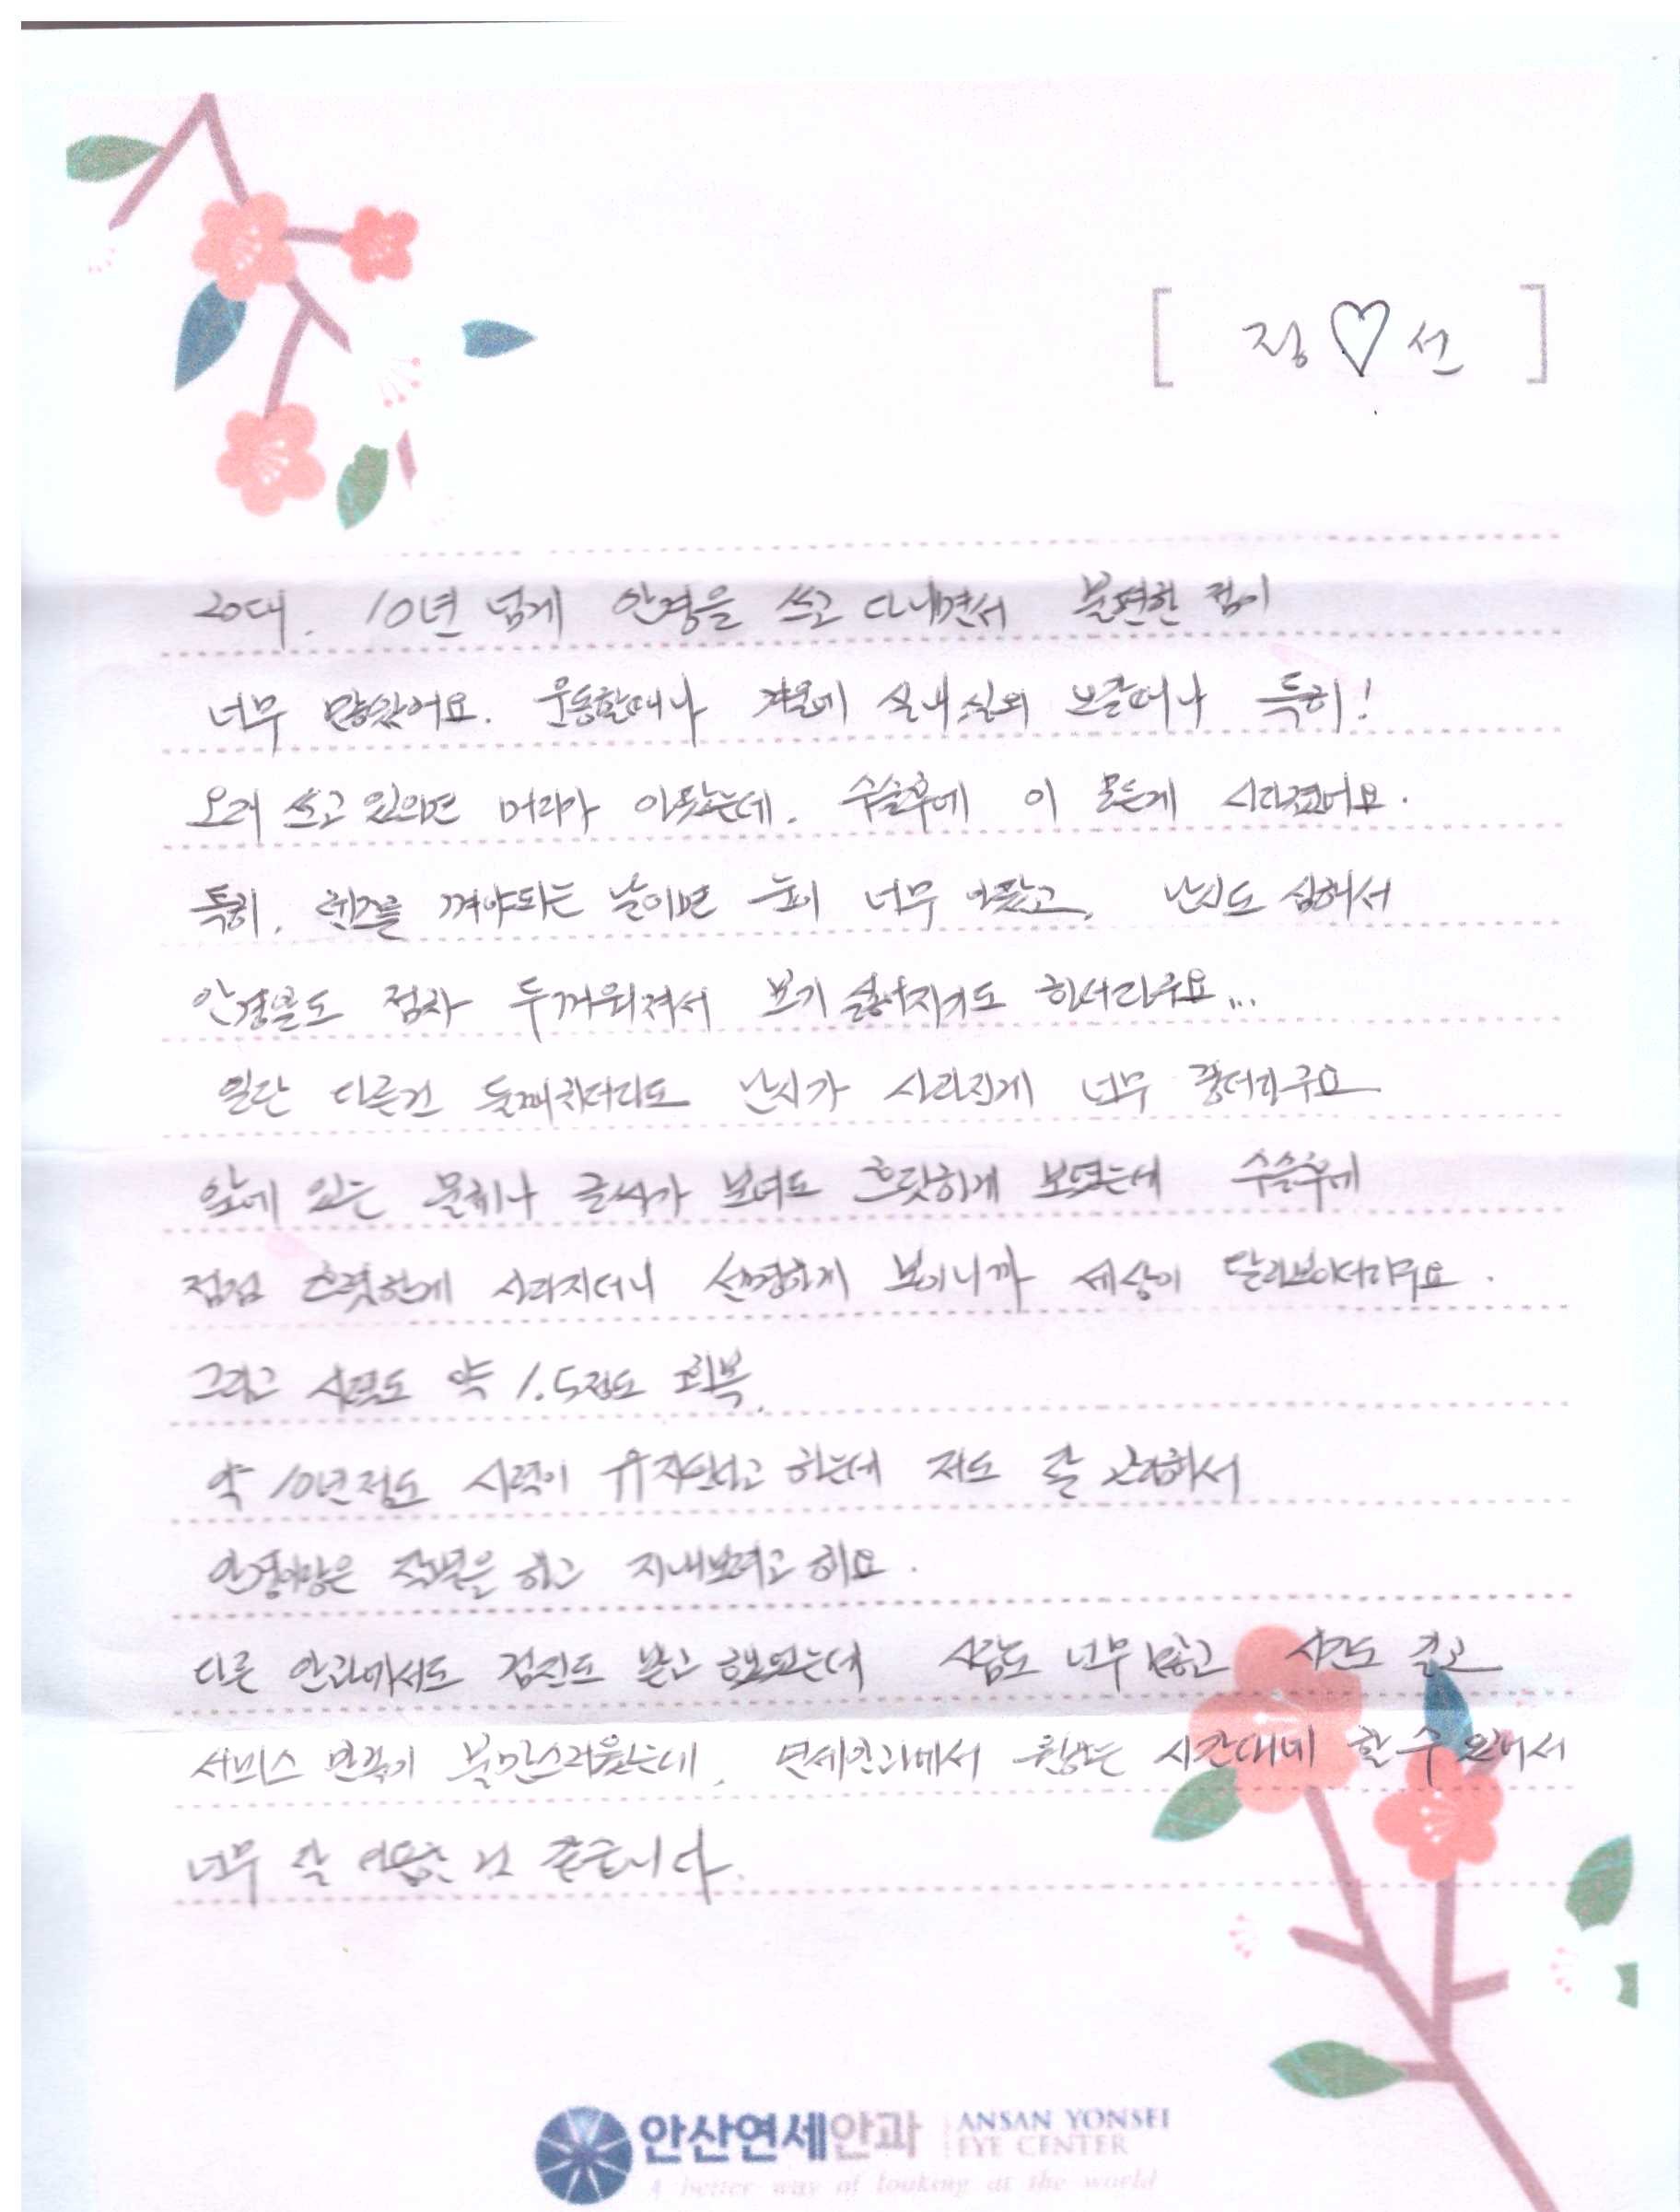 [ 장♡선 ]
20대. 10년 넘게 안경을 쓰고 다니면서 불편한 점이
너무 많았어요. 운동할때나 겨울에 실내,실외 오갈때나 특히!
오래 쓰고 있으면 머리가 아팠는데, 수술후에 이 모든게 사라졌어요.
특히, 렌즈를 껴야되는 날이면 눈이 너무 아팠고, 난시도 심해서
안경알도 점차 두꺼워져서 보기 싫어지기도 하더라구요...
일단 다른건 둘째치더라도 난시가 사라진게 너무 좋더라구요
앞에 있는 물체나 글씨가 보여도 흐릿하게 보였는데 수술후에
점점 흐릿한게 사라지더니 선명하게 보이니까 세상이 달라보이더라구요.
그리고 시력도 약 1.5정도 회복,
약 10년정도 시력이 유지된다고 하는데 저도 잘 관리해서
안경이랑은 작별을 하고 지내보려고 해요.
다른 안과에서도 검진도 받고 했었는데 사람도 너무 많고 시간도 길고
서비스 만족이 불만스러웠는데, 연세안과에서 원하는 시간대에 할 수 있어서
너무 잘 이용한 것 같습니다.
안산연세안과 ANSAN YONSEI
EYE CENTER
A better way of looking at the world